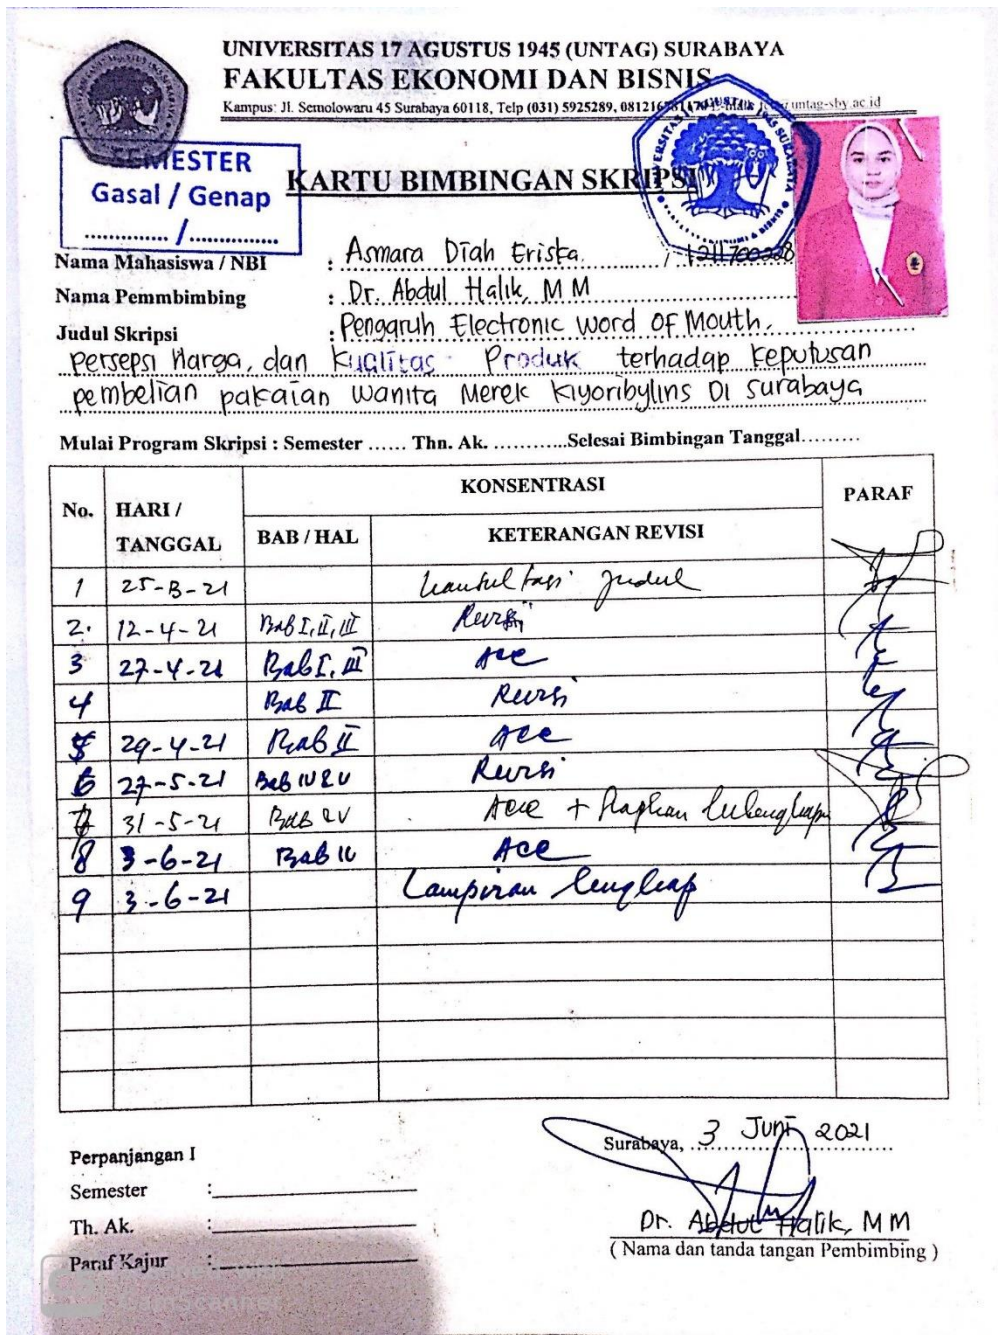 UNIVERSITAS 17 AGUSTUS 1945 (UNTAG) SURABAYA
FAKULTAS EKONOMI DAN BISNIS
Kampus: Jl. Semolowaru 45 Surabaya 60118, Telp (031) 5925289, untag-sby.ac.id
SEMESTER
Gasal / Genap
............... / ...............
KARTU BIMBINGAN SKRIPSI
Nama Mahasiswa / NBI : Asmara Diah Eriska / 1211700228
Nama Pemmbimbing : Dr. Abdul Halik, MM
Judul Skripsi : Pengaruh Electronic word OF Mouth,
Persepsi Harga, dan Kualitas Produk terhadap keputusan
pembelian pakaian Wanita Merek Kiyoribylins Di surabaya
Mulai Program Skripsi : Semester ...... Thn. Ak. ............Selesai Bimbingan Tanggal.........
No. HARI / TANGGAL KONSENTRASI PARAF
BAB / HAL KETERANGAN REVISI
1 25-3-21 judul
2. 12-4-21 Bab I, II, III Revisi
3 27-4-21 Bab I, III Acc
4 Bab II Revisi
5 29-4-21 Bab II Acc
6 27-5-21 Bab IV & V Revisi
7 31-5-21 Bab V Acc +
8 3-6-21 Bab IV Acc
9 3-6-21 Lampiran lengkap
Surabaya, 3 Juni 2021
Perpanjangan I
Semester :
Th. Ak. :
Paraf Kajur :
Dr. Abdul Halik, MM
( Nama dan tanda tangan Pembimbing )